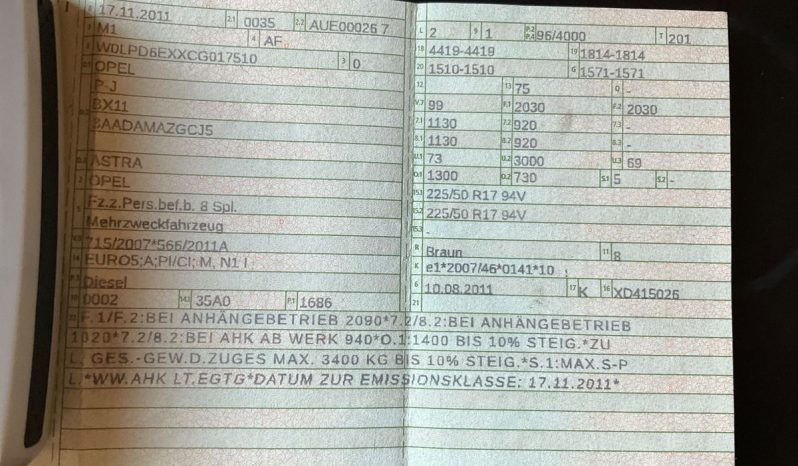 17.11.2011 2.1 0035 2.2 AUE00026 7
M1 4 AF
W0LPD6EXXCG017510 3 0
OPEL
P-J
BX11
BAADAMAZGCJ5
ASTRA
2 OPEL
5 Fz.z.Pers.bef.b. 8 Spl.
Mehrzweckfahrzeug
V.9 715/2007*566/2011A
14 EURO5;A;PI/CI; M, N1 I
P.3 Diesel
10 0002 14.1 35A0 P.1 1686
L 2 9 1 P.2 P.4 96/4000 T 201
18 4419-4419 19 1814-1814
20 1510-1510 G 1571-1571
12 13 75 Q -
V.7 99 F.1 2030 F.2 2030
7.1 1130 7.2 920 7.3 -
8.1 1130 8.2 920 8.3 -
U.1 73 U.2 3000 U.3 69
O.1 1300 O.2 730 S.1 5 S.2 -
15.1 225/50 R17 94V
15.2 225/50 R17 94V
15.3 -
R Braun 11 8
K e1*2007/46*0141*10
6 10.08.2011 17 K 16 XD415026
21
22 F.1/F.2:BEI ANHÄNGEBETRIEB 2090*7.2/8.2:BEI ANHÄNGEBETRIEB
1020*7.2/8.2:BEI AHK AB WERK 940*O.1:1400 BIS 10% STEIG.*ZU
L. GES.-GEW.D.ZUGES MAX. 3400 KG BIS 10% STEIG.*S.1:MAX.S-P
L.*WW.AHK LT.EGTG*DATUM ZUR EMISSIONSKLASSE: 17.11.2011*